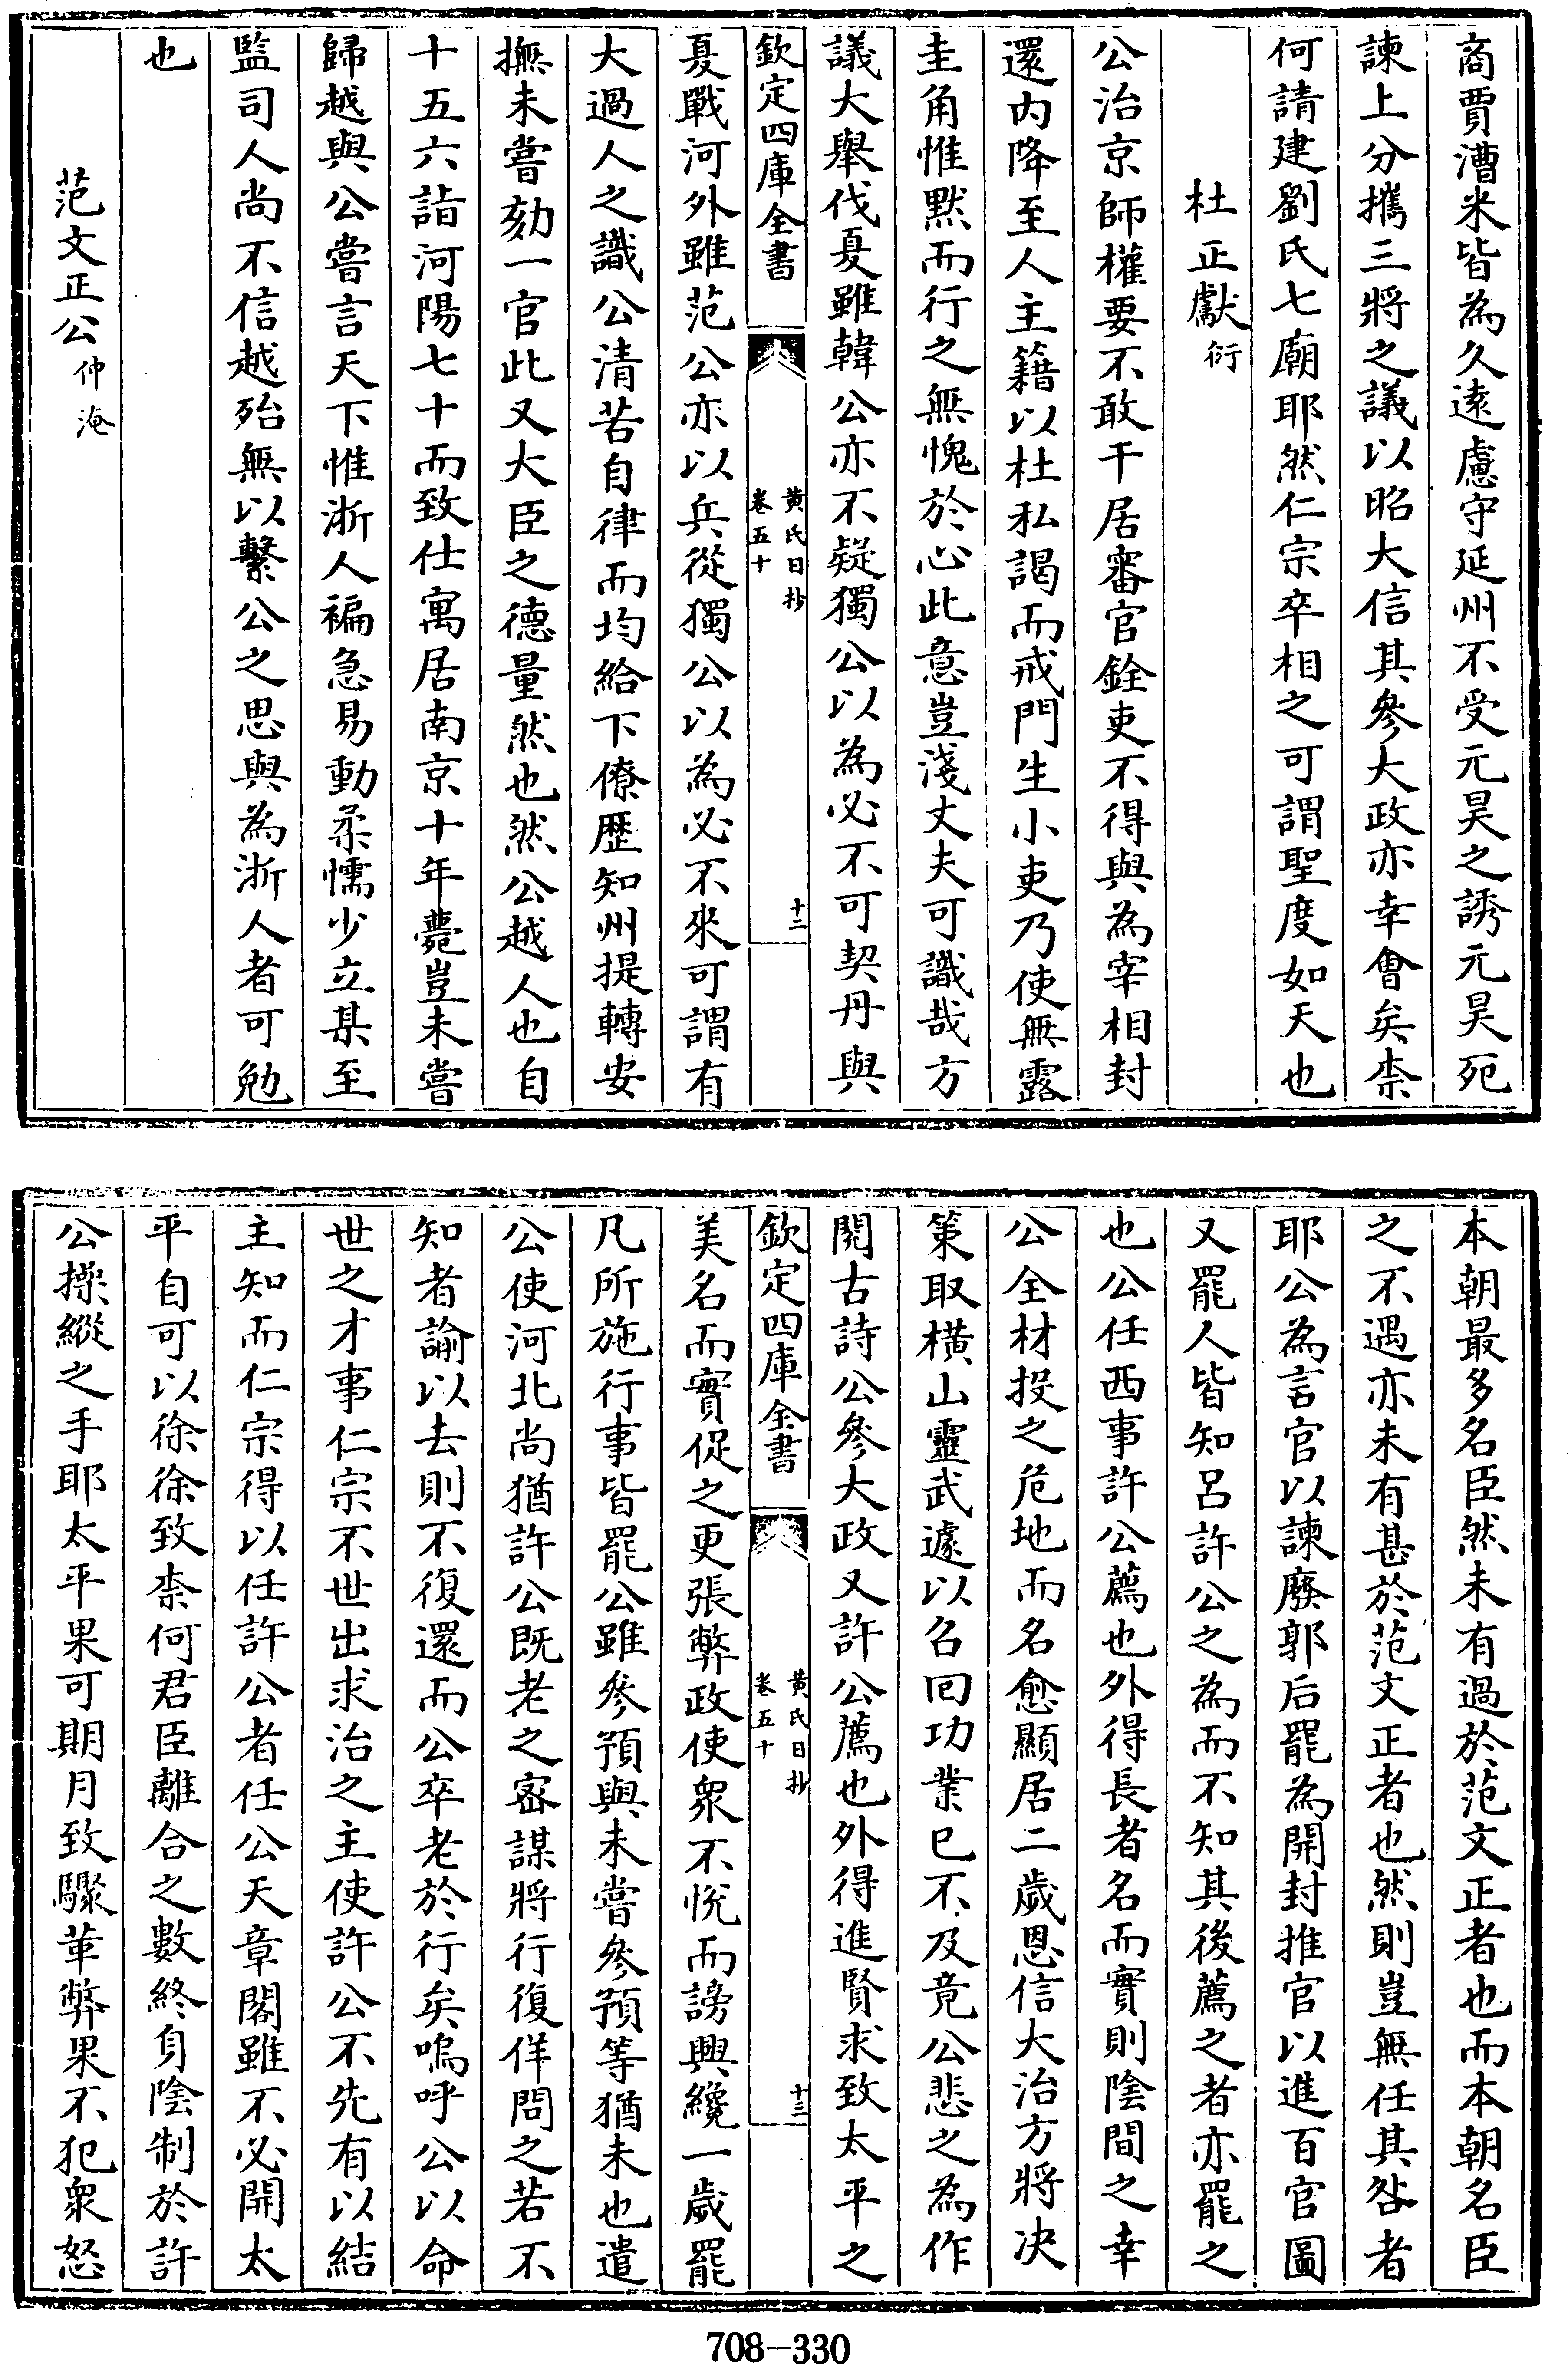 商賈漕米皆為久遠慮守延州不受元昊之誘元昊死
諫上分攜三將之議以昭大信其參大政亦幸會矣柰
何請建劉氏七廟耶然仁宗卒相之可謂聖度如天也
杜正獻衍
公治京師權要不敢干居審官銓吏不得與為宰相封
還内降至人主籍以杜私謁而戒門生小吏乃使無露
圭角惟默而行之無愧於心此意豈淺丈夫可識哉方
議大舉伐夏雖韓公亦不疑獨公以為必不可契丹與
欽定四庫全書
黄氏日抄
卷五十
十二
夏戰河外雖范公亦以兵從獨公以為必不來可謂有
大過人之識公清若自律而均給下僚歷知州提轉安
撫未嘗劾一官此又大臣之德量然也然公越人也自
十五六詣河陽七十而致仕寓居南京十年薨豈未嘗
歸越與公嘗言天下惟浙人褊急易動柔懦少立某至
監司人尚不信越殆無以繫公之思與為浙人者可勉
也
范文正公仲淹
本朝最多名臣然未有過於范文正者也而本朝名臣
之不遇亦未有甚於范文正者也然則豈無任其咎者
耶公為言官以諫廢郭后罷為開封推官以進百官圖
又罷人皆知呂許公之為而不知其後薦之者亦罷之
也公任西事許公薦也外得長者名而實則陰間之幸
公全材投之危地而名愈顯居二歲恩信大洽方將决
策取橫山靈武遽以召回功業已不及竟公悲之為作
閱古詩公參大政又許公薦也外得進賢求致太平之
欽定四庫全書
黄氏日抄
卷五十
十三
美名而實促之更張弊政使衆不悅而謗興纔一歲罷
凡所施行事皆罷公雖參預與未嘗參預等猶未也遣
公使河北尚猶許公既老之密謀將行復佯問之若不
知者諭以去則不復還而公卒老於行矣嗚呼公以命
世之才事仁宗不世出求治之主使許公不先有以結
主知而仁宗得以任許公者任公天章閣雖不必開太
平自可以徐徐致柰何君臣離合之數終身陰制於許
公操縱之手耶太平果可期月致驟革弊果不犯衆怒
708-330